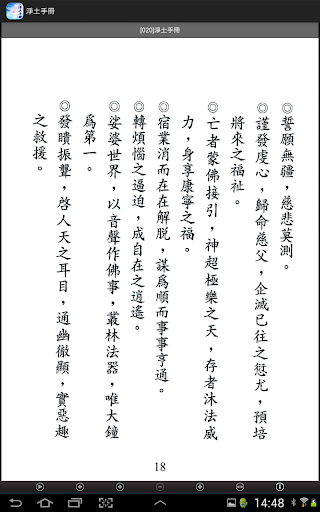 淨土手冊
[020]淨土手冊
◎誓願無疆，慈悲莫測。
◎謹發虔心，歸命慈父，企滅已往之愆尤，預培
將來之福祉。
◎亡者蒙佛接引，神超極樂之天，存者沐法威
力，身享康寧之福。
◎宿業消而在在解脫，謀為順而事事亨通。
◎轉煩惱之逼迫，成自在之逍遙。
◎娑婆世界，以音聲作佛事，叢林法器，唯大鐘
為第一。
◎發聵振聾，啓人天之耳目，通幽徹顯，實惡趣
之救援。
18
14:48